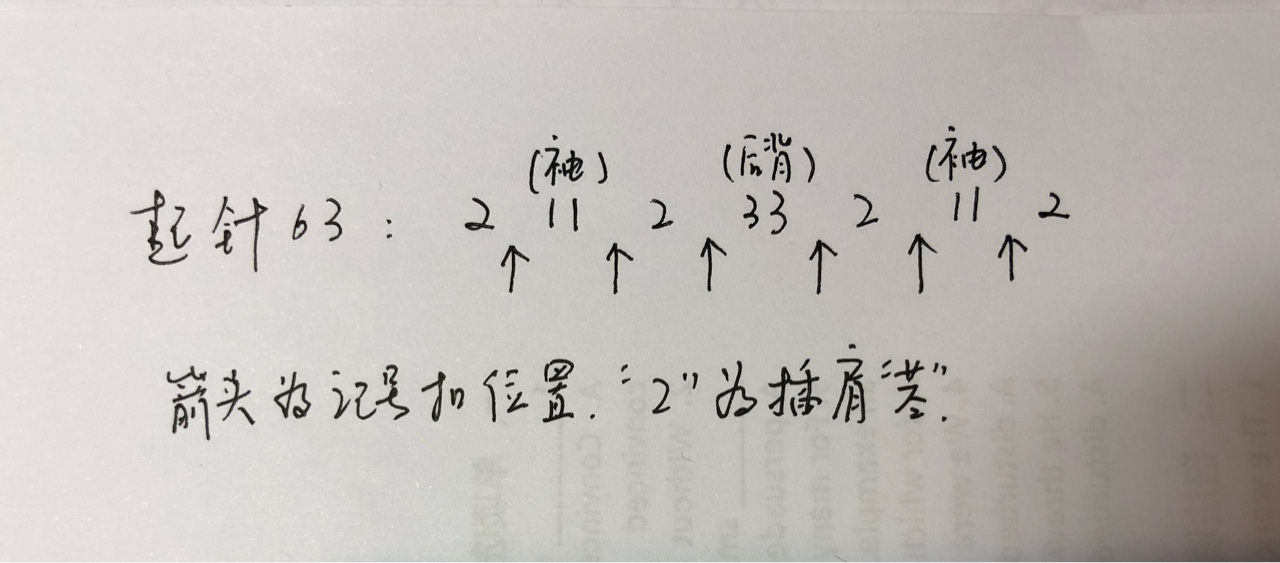 (袖) (后背) (袖)
起针63: 2 11 2 33 2 11 2
↑ ↑ ↑ ↑ ↑ ↑
箭头为记号扣位置. "2"为插肩"茎".